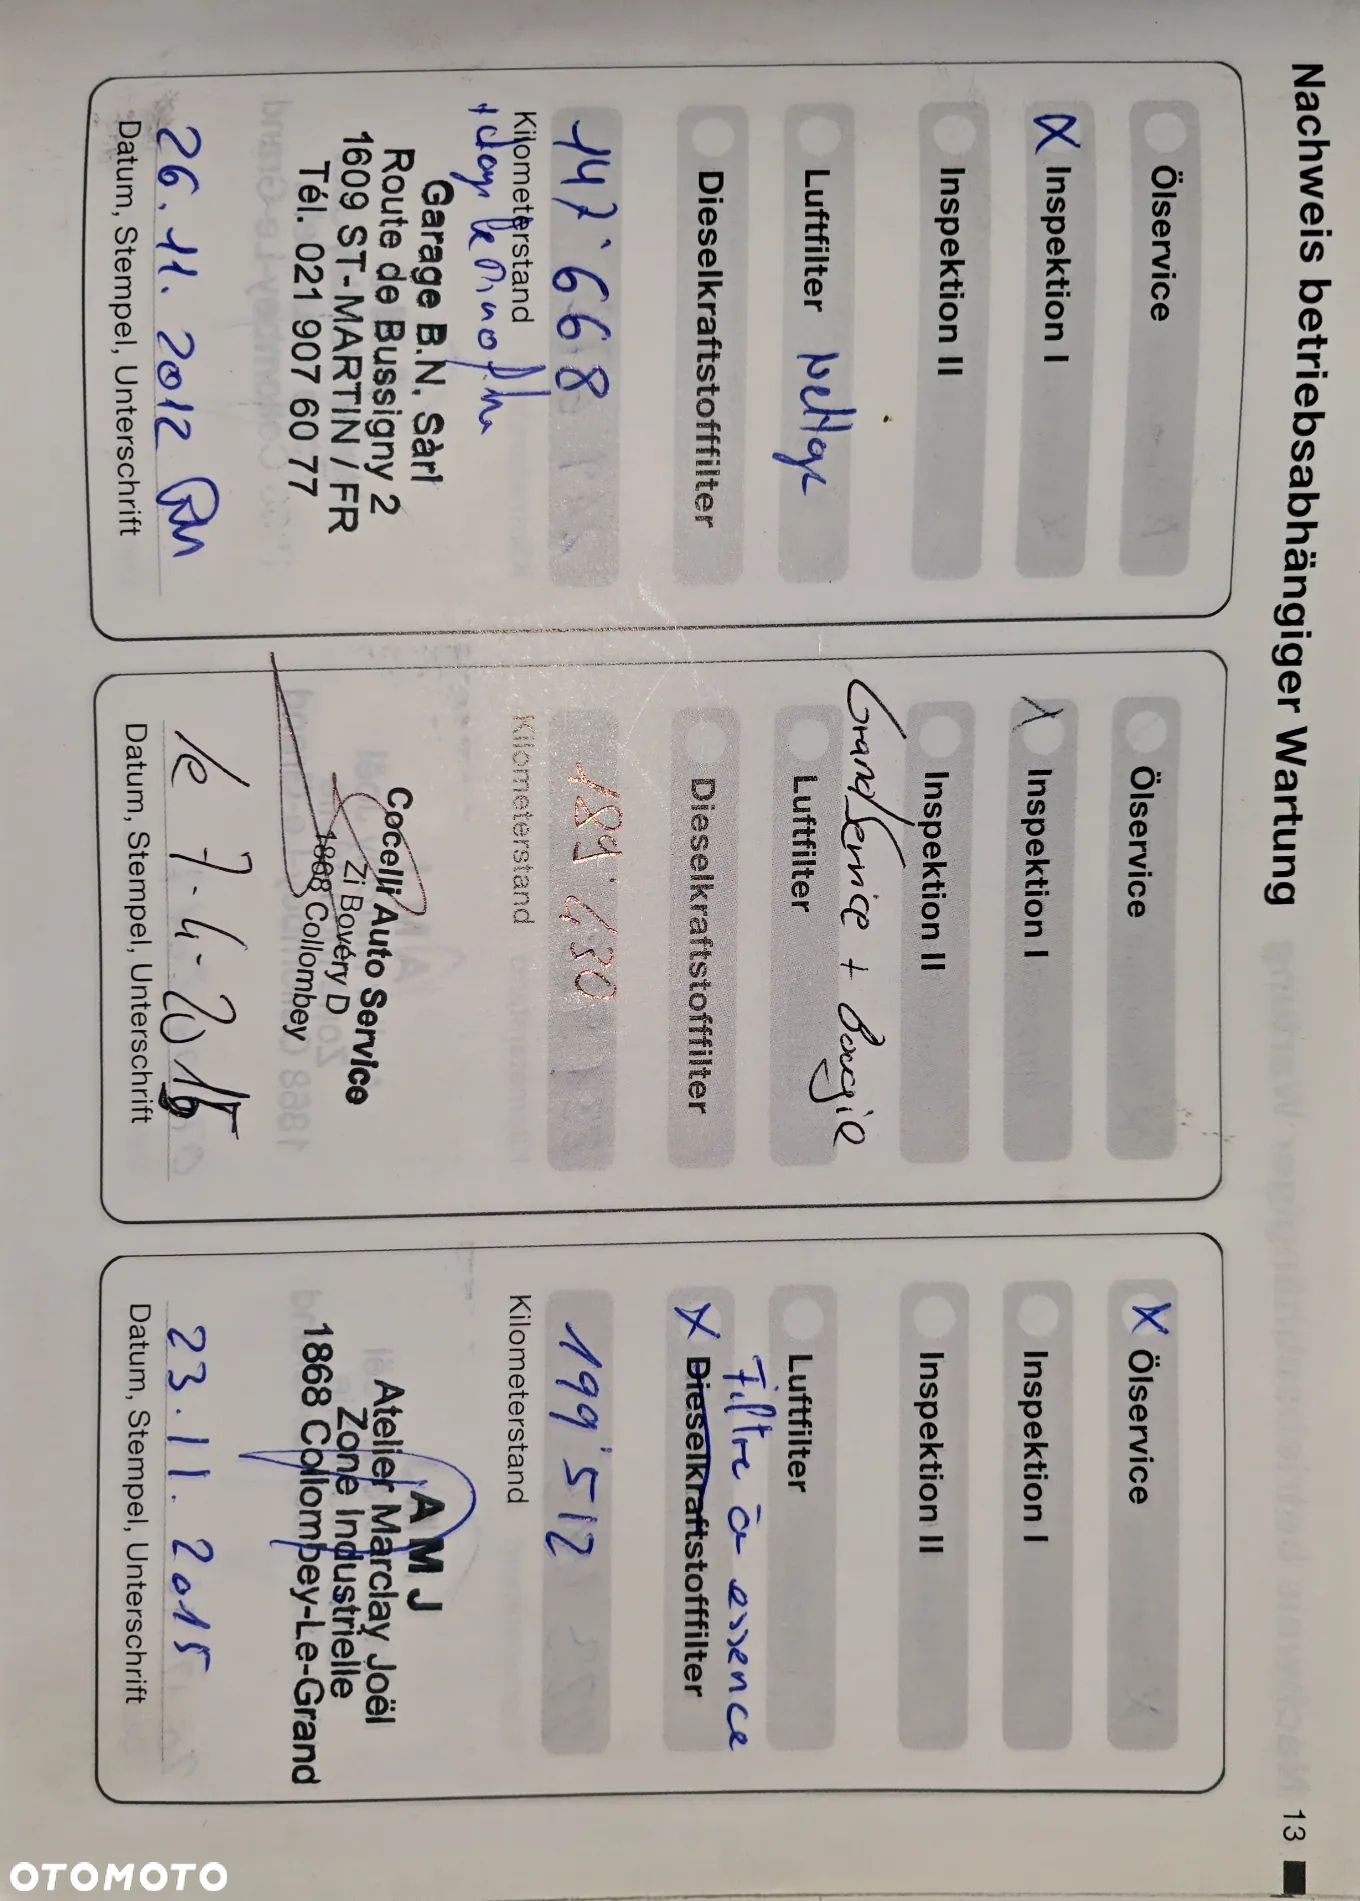 Nachweis betriebsabhängiger Wartung
13
Ölservice
X Inspektion I
Inspektion II
Luftfilter Nettoye
Dieselkraftstofffilter
147'668
Kilometerstand
Garage B.N. Sàrl
Route de Bussigny 2
1609 ST-MARTIN / FR
Tél. 021 907 60 77
26.11.2012
Datum, Stempel, Unterschrift
Ölservice
X Inspektion I
Inspektion II
Grand Service + Bougie
Luftfilter
Dieselkraftstofffilter
189'430
Kilometerstand
Cocelli Auto Service
Zi Bovéry D
1868 Collombey
le 7-4-2015
Datum, Stempel, Unterschrift
X Ölservice
Inspektion I
Inspektion II
Luftfilter
Filtre à essence
X Dieselkraftstofffilter
199'512
Kilometerstand
AMJ
Atelier Marclay Joël
Zone Industrielle
1868 Collombey-Le-Grand
23.11.2015
Datum, Stempel, Unterschrift
OTOMOTO